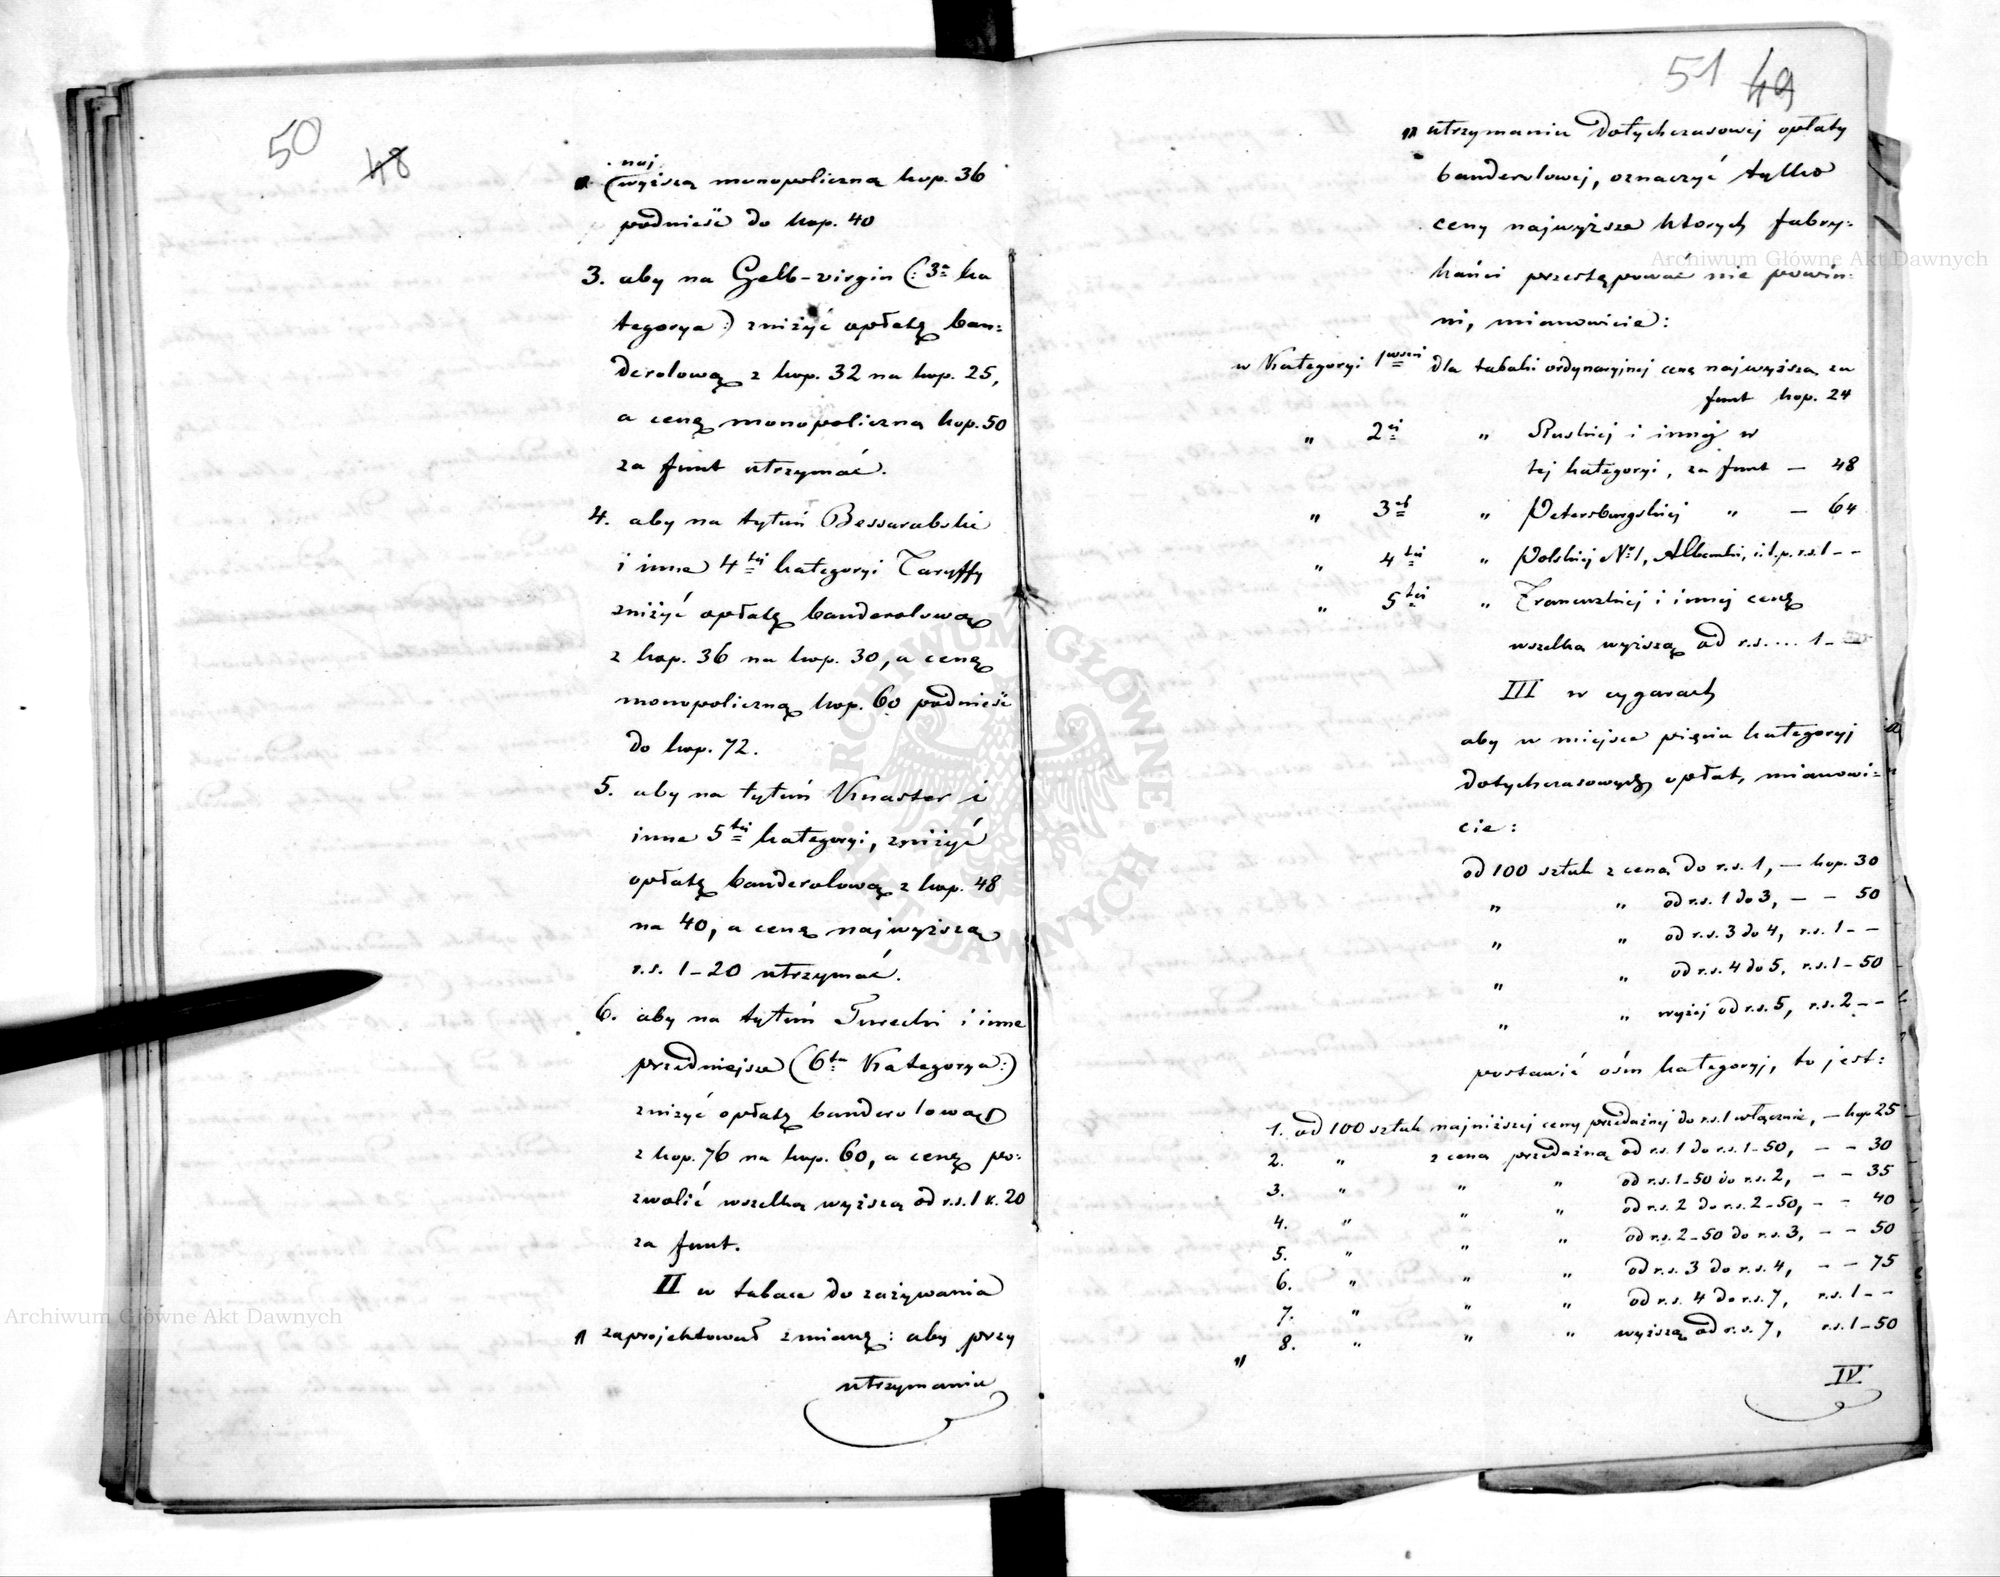 50
48
naj
" (wyższą monopoliczną kop. 36
podnieść do kop. 40
3. aby na Gelb-virgin (: 3a ka
tegorya:) zniżyć opłatę ban=
derolową z kop. 32 na kop. 25,
a cenę monopoliczną kop. 50
za funt utrzymać.
4. aby na tytuń Bessarabski
i inne 4tej kategoryi Taryffy
zniżyć opłatę banderolową
z kop. 36 na kop. 30, a cenę
monopoliczną kop. 60 podnieść
do kop. 72.
5. aby na tytuń Knaster i
inne 5tej kategoryi, zniżyć
opłatę banderolową z kop. 48
na 40, a cenę najwyższą
r.s. 1-20 utrzymać.
6. aby na tytuń Turecki i inne
przedniejsze (6ta Kategorya:)
zniżyć opłatę banderolową
z kop. 76 na kop. 60, a cenę po=
zwolić wszelką wyższą od r.s. 1 k. 20
za funt.
II w tabace do zażywania
" zaprojektował zmianę: aby przy
utrzymaniu
51 49
" utrzymaniu dotychczasowej opłaty
banderolowej, oznaczyć tylko
ceny najwyższe których fabry=
kańci przestępować nie powin=
ni, mianowicie:
w Kategoryi 1wszej dla tabaki ordynaryjnej cenę najwyższą za
funt kop. 24
" 2ej " Ruskiej i innej w
tej kategoryi, za funt — 48
" 3ej " Petersburgskiej " — 64
" 4tej " Polskiej No 1, Albanki, i t.p. r.s. 1 - -
" 5tej " Francuzkiej i innej cenę
wszelką wyższą od r.s. .... 1 - -
III w cygarach
aby w miejsce pięciu kategoryj
dotychczasowych opłat, mianowi=
cie:
od 100 sztuk z ceną do r.s. 1, — kop. 30
" " od r.s. 1 do 3, — - 50
" " od r.s. 3 do 4, r.s. 1 - -
" " od r.s. 4 do 5, r.s. 1 - 50
" " wyżej od r.s. 5, r.s. 2 - -
postawić ośm kategoryj, to jest:
1. od 100 sztuk najniższej ceny przedażnej do r.s. 1 włącznie, — kop 25
2. " z ceną przedażną od r.s. 1 do r.s. 1-50, - - 30
3. " " " od r.s. 1-50 do r.s. 2, - - 35
4. " " " od r.s. 2 do r.s. 2-50, - - 40
5. " " " od r.s. 2-50 do r.s. 3, - - 50
6. " " " od r.s. 3 do r.s. 4, - - 75
7. " " " od r.s. 4 do r.s. 7, r.s. 1 - -
8. " " " wyższą od r.s. 7, r.s. 1-50
"
IV
Archiwum Główne Akt Dawnych
Archiwum Główne Akt Dawnych
ARCHIWUM GŁÓWNE AKT DAWNYCH